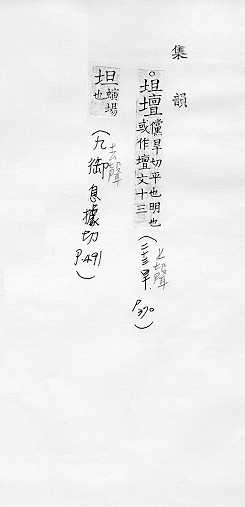 集韻
坦壇儻旱切平也明也或作壇文十三(二十三旱上聲P370)
坦蟥場也(九御去聲息據切P.491)